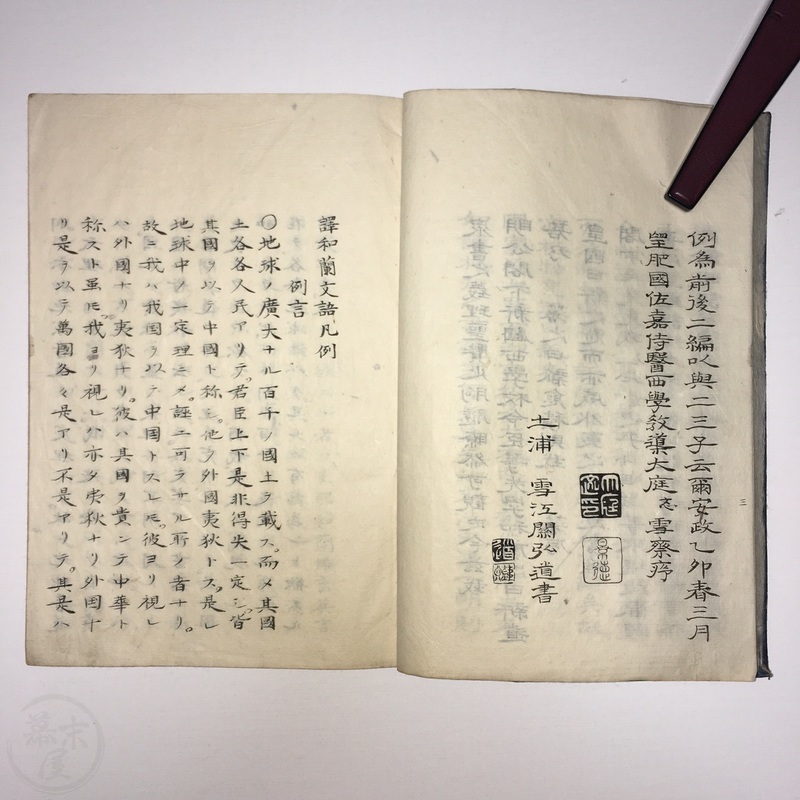 例為前後二編以與二三子云爾安政乙卯春三月
皇肥國佐嘉侍醫西學敎導大庭忞雪齋序
大庭
忞印
景德
土浦 雪江關弘道書
三
譯和蘭文語凡例
例言
〇地球ノ廣大ナル百千ノ國土ヲ載ス。而メ其國
土各各人民アリテ。君臣上下是非得失一定シ。皆
其國ヲ以テ中國ト称シ。他ヲ外國夷狄トス。是レ
地球中ノ一定理ニメ。誣ユ可ラサル所ノ者ナリ。
故ニ我ハ我国ヲ以テ中国トスレ𪜈。彼ヨリ視レ
ハ外國ナリ夷狄ナリ。彼ハ其國ヲ貴ンテ中華ト
称スト虽𪜈。我ヨリ視レハ亦タ夷狄ナリ外国ナ
リ是ヲ以テ萬國各々是アリ不是アリテ。其是ハ
幕末屋